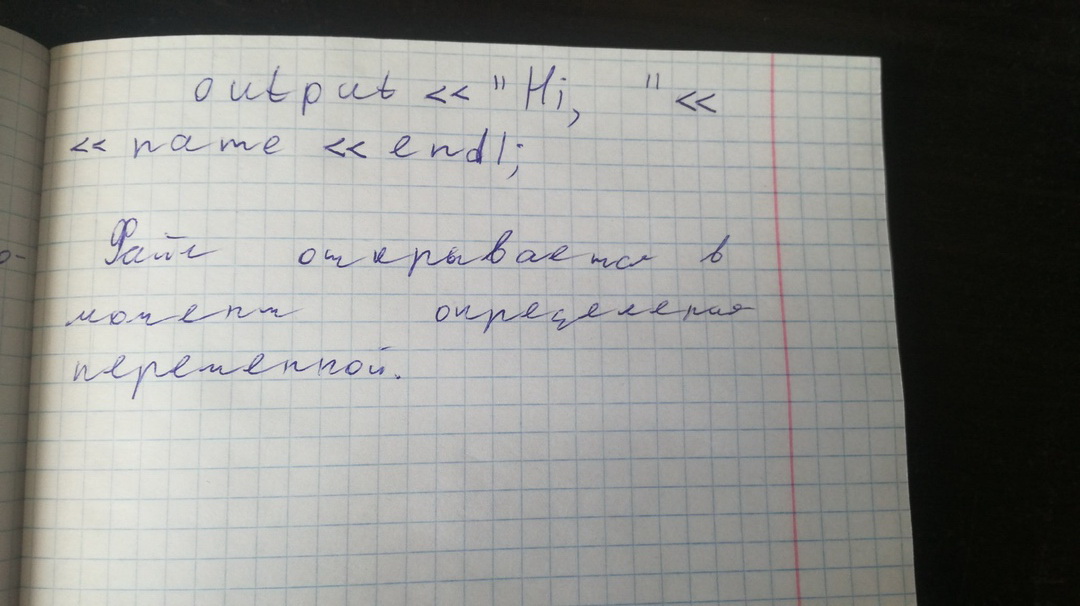 output << "Hi, " <<
<< name << endl;
Файл открывается в
момент определения
переменной.